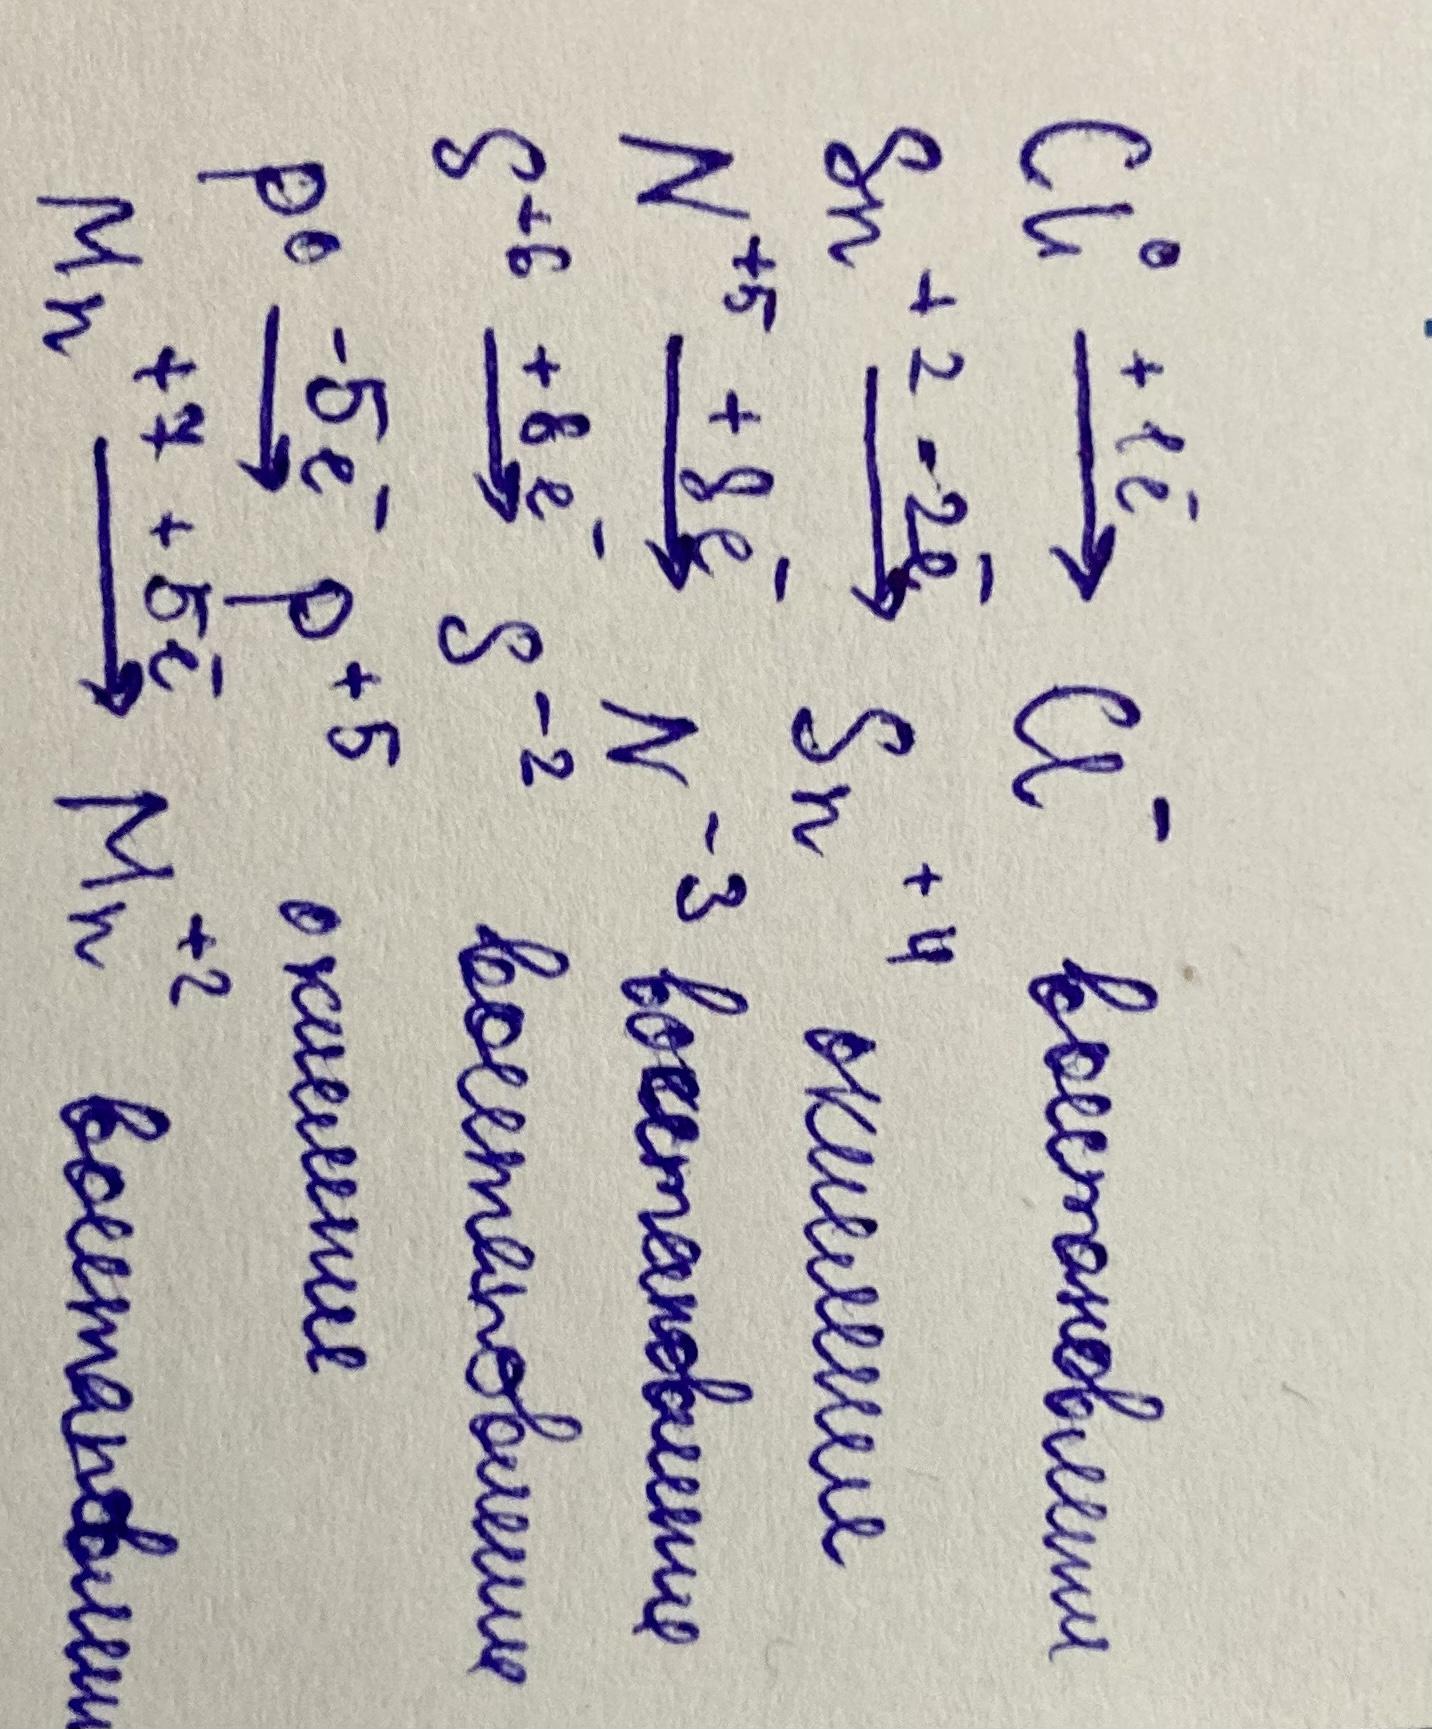 Cl⁰ +1e⁻→ Cl⁻ восстановлении
Sn⁺² -2e⁻→ Sn⁺⁴ окисление
N⁺⁵ +8e⁻→ N⁻³ восстановление
S⁺⁶ +8e⁻→ S⁻² восстановление
P⁰ -5e⁻→ P⁺⁵ окисление
Mn⁺⁷ +5e⁻→ Mn⁺² восстановлени